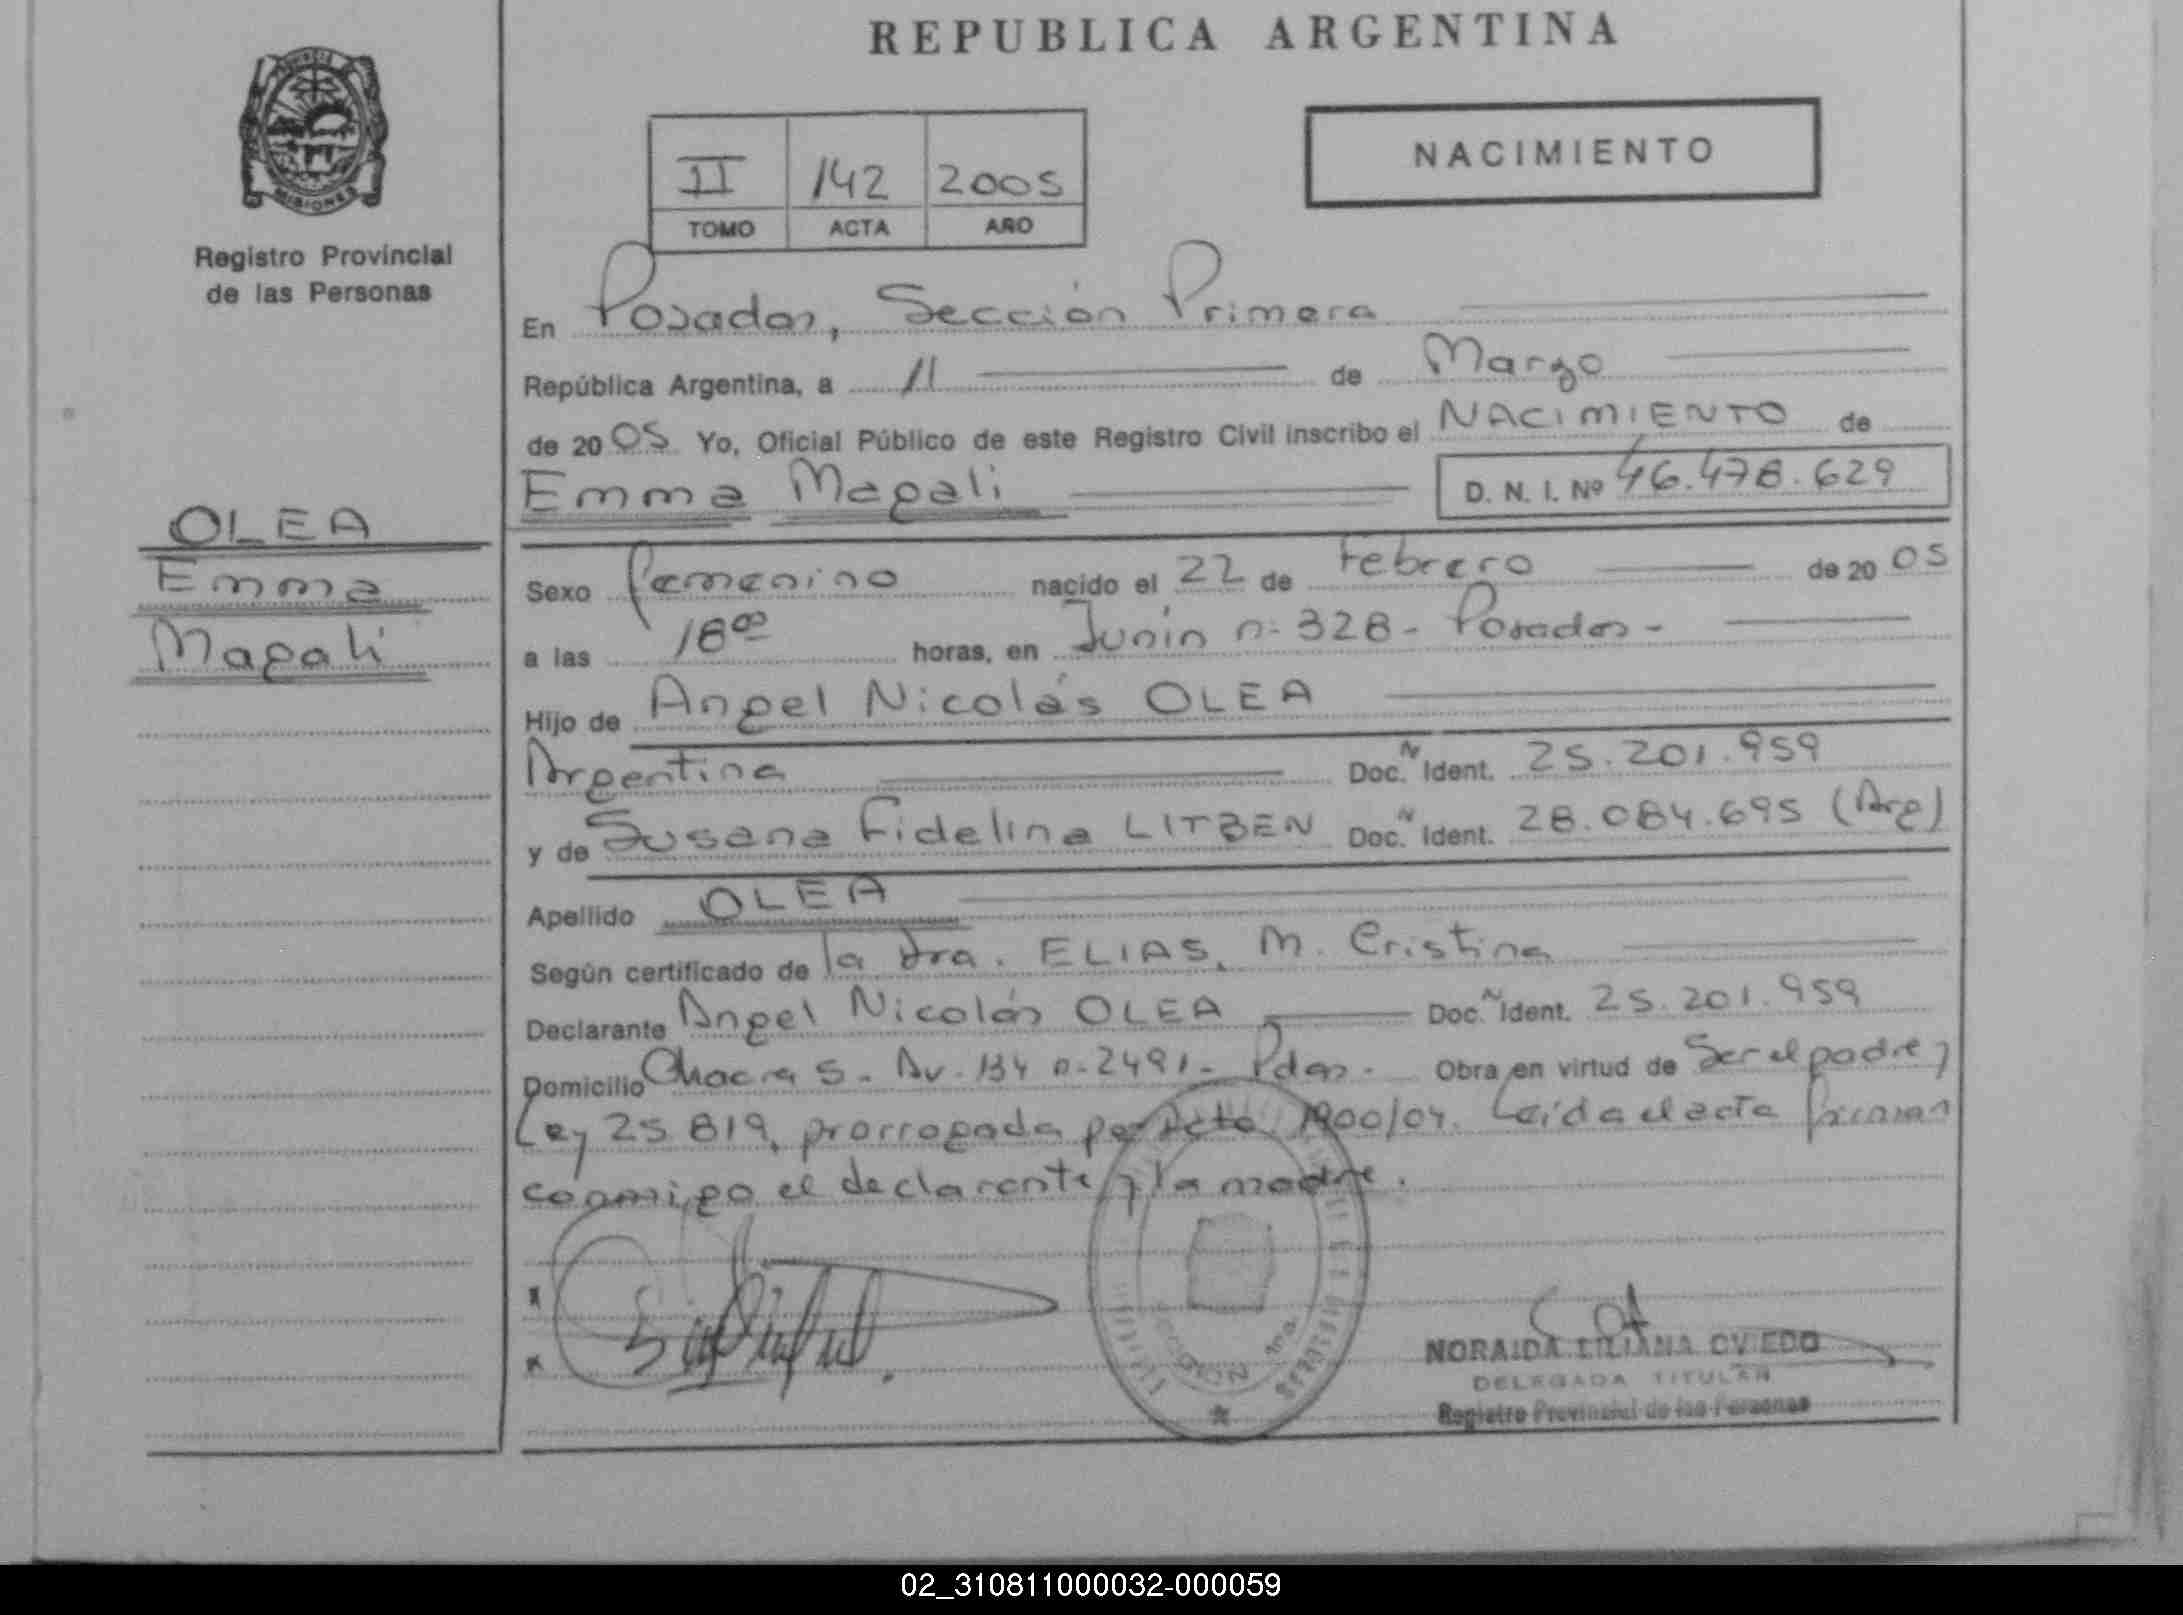 REPUBLICA ARGENTINA
MISIONES
Registro Provincial
de las Personas
II 142 2005
TOMO ACTA AÑO
NACIMIENTO
En Posadas, Sección Primera
República Argentina, a 11 de Marzo
de 2005 Yo, Oficial Público de este Registro Civil inscribo el NACIMIENTO de
Emma Magali D. N. I. Nº 46.478.629
OLEA
Emma
Magali
Sexo femenino nacido el 22 de Febrero de 2005
a las 18⁰⁰ horas, en Junín n: 328- Posadas-
Hijo de Angel Nicolás OLEA
Argentina Doc. N Ident. 25.201.959
y de Susana Fidelina LITBEN Doc. N Ident. 28.084.695 (Arg)
Apellido OLEA
Según certificado de la dra. ELIAS, M. Cristina
Declarante Angel Nicolás OLEA Doc. N Ident. 25.201.959
Domicilio Chacra 5- Av. 134 n-2491- Pdas. Obra en virtud de Ser el padre y
Ley 25 819, prorrogada por Dcto 1900/04. Leída el acta firman
conmigo el declarante y la madre.
SECCION 1ra.
NORAIDA LILIANA OVIEDO
DELEGADA TITULAR
Registro Provincial de las Personas
02_310811000032-000059